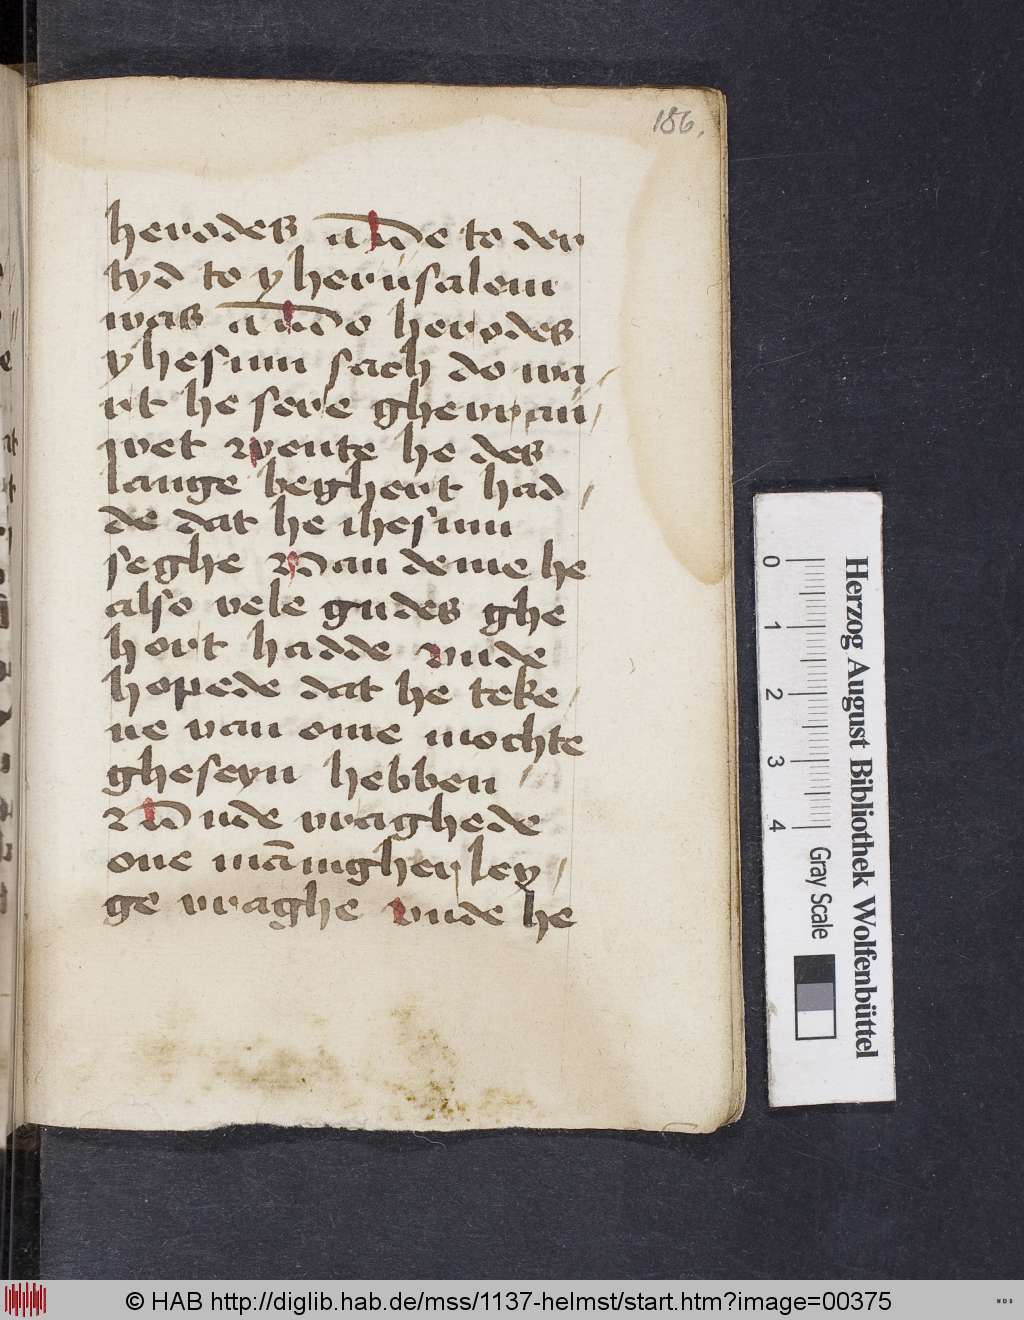 186.
herodes wede to der
tyd to yherusalem
was Do herodes
yhesum sach do wa
rt he sere ghevrau
wet wente he des
lange beghert had
de dat he ihesum
seghe van deme he
also vele gudes ghe
hort hadde vnde
hopede dat he teke
ne van ome mochte
gheseyn hebben
vnde vraghede
one mānigherley
ge vraghe vnde he
Herzog August Bibliothek Wolfenbüttel
0 1 2 3 4 Gray Scale
© HAB http://diglib.hab.de/mss/1137-helmst/start.htm?image=00375